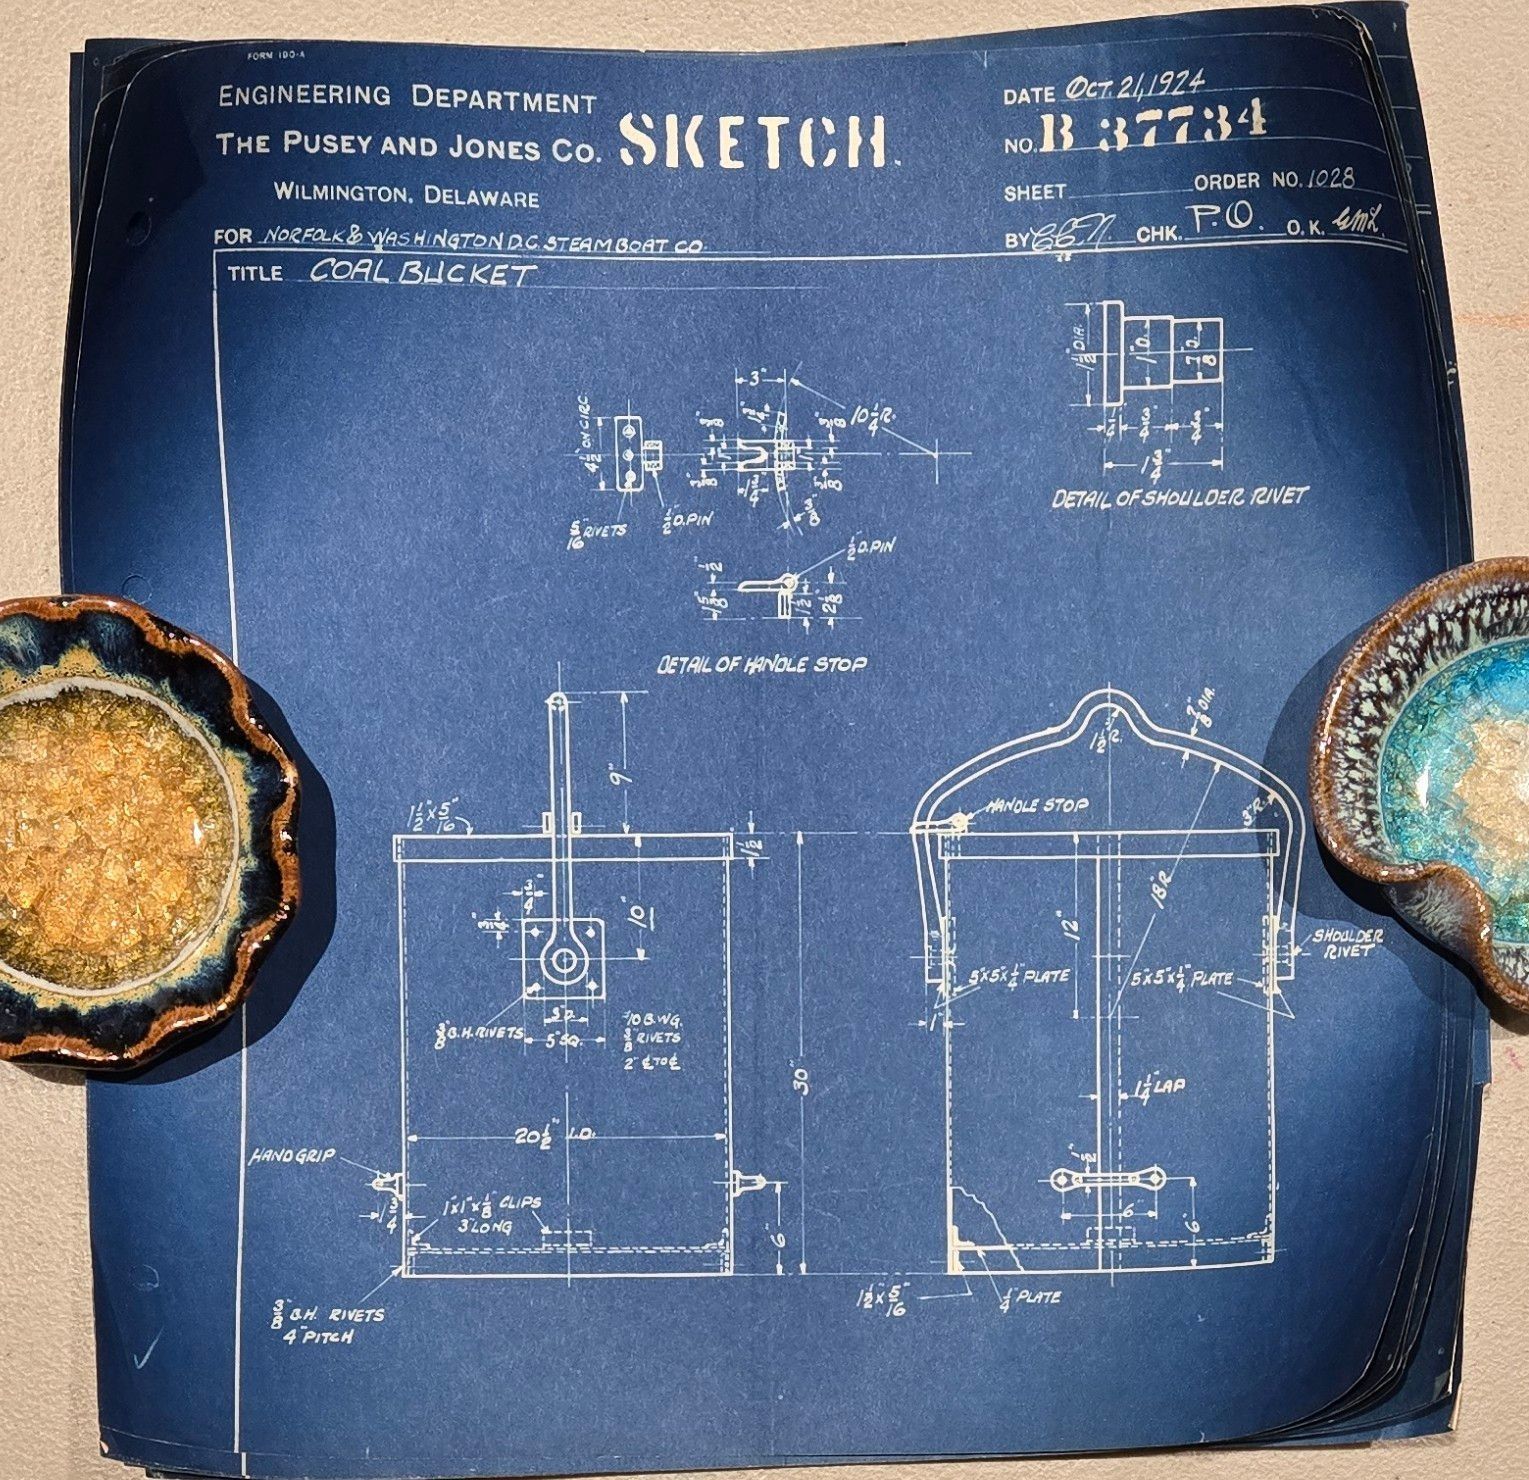 FORM 190-A
ENGINEERING DEPARTMENT
THE PUSEY AND JONES CO. SKETCH.
WILMINGTON, DELAWARE
DATE OCT. 21, 1924
NO. B 37734
SHEET ORDER NO. 1028
BY CHK. P.O. O.K.
FOR NORFOLK & WASHINGTON D.C. STEAMBOAT CO.
TITLE COAL BUCKET
1 1/2" DIA.
1" D.
7/8" D.
1/4"
3/4"
3/4"
1 3/4"
DETAIL OF SHOULDER RIVET
4 1/2" ON CIRC.
3"
10 1/4" R.
5/16" RIVETS
1/2" D. PIN
3/8"
1/2" D. PIN
1/2
1 5/8"
1 1/2"
2 1/8"
DETAIL OF HANDLE STOP
9"
1 1/2" x 5/16"
1 1/2"
3/4"
3/4"
10"
3/8" B.H. RIVETS
3" D.
5" SQ.
#10 B.W.G.
3/8" RIVETS
2" ℄ TO ℄
20 1/2" I.D.
30"
HANDGRIP
1" x 1" x 1/8" CLIPS
3" LONG
6"
3/8" B.H. RIVETS
4" PITCH
1 1/2" R.
7/8" DIA.
HANDLE STOP
3" R.
12"
18" R
SHOULDER
RIVET
5" x 5" x 1/4" PLATE
5" x 5" x 1/4" PLATE
1"
1 1/4" LAP
1/2"
6"
6"
1 1/2" x 5/16"
1/4" PLATE